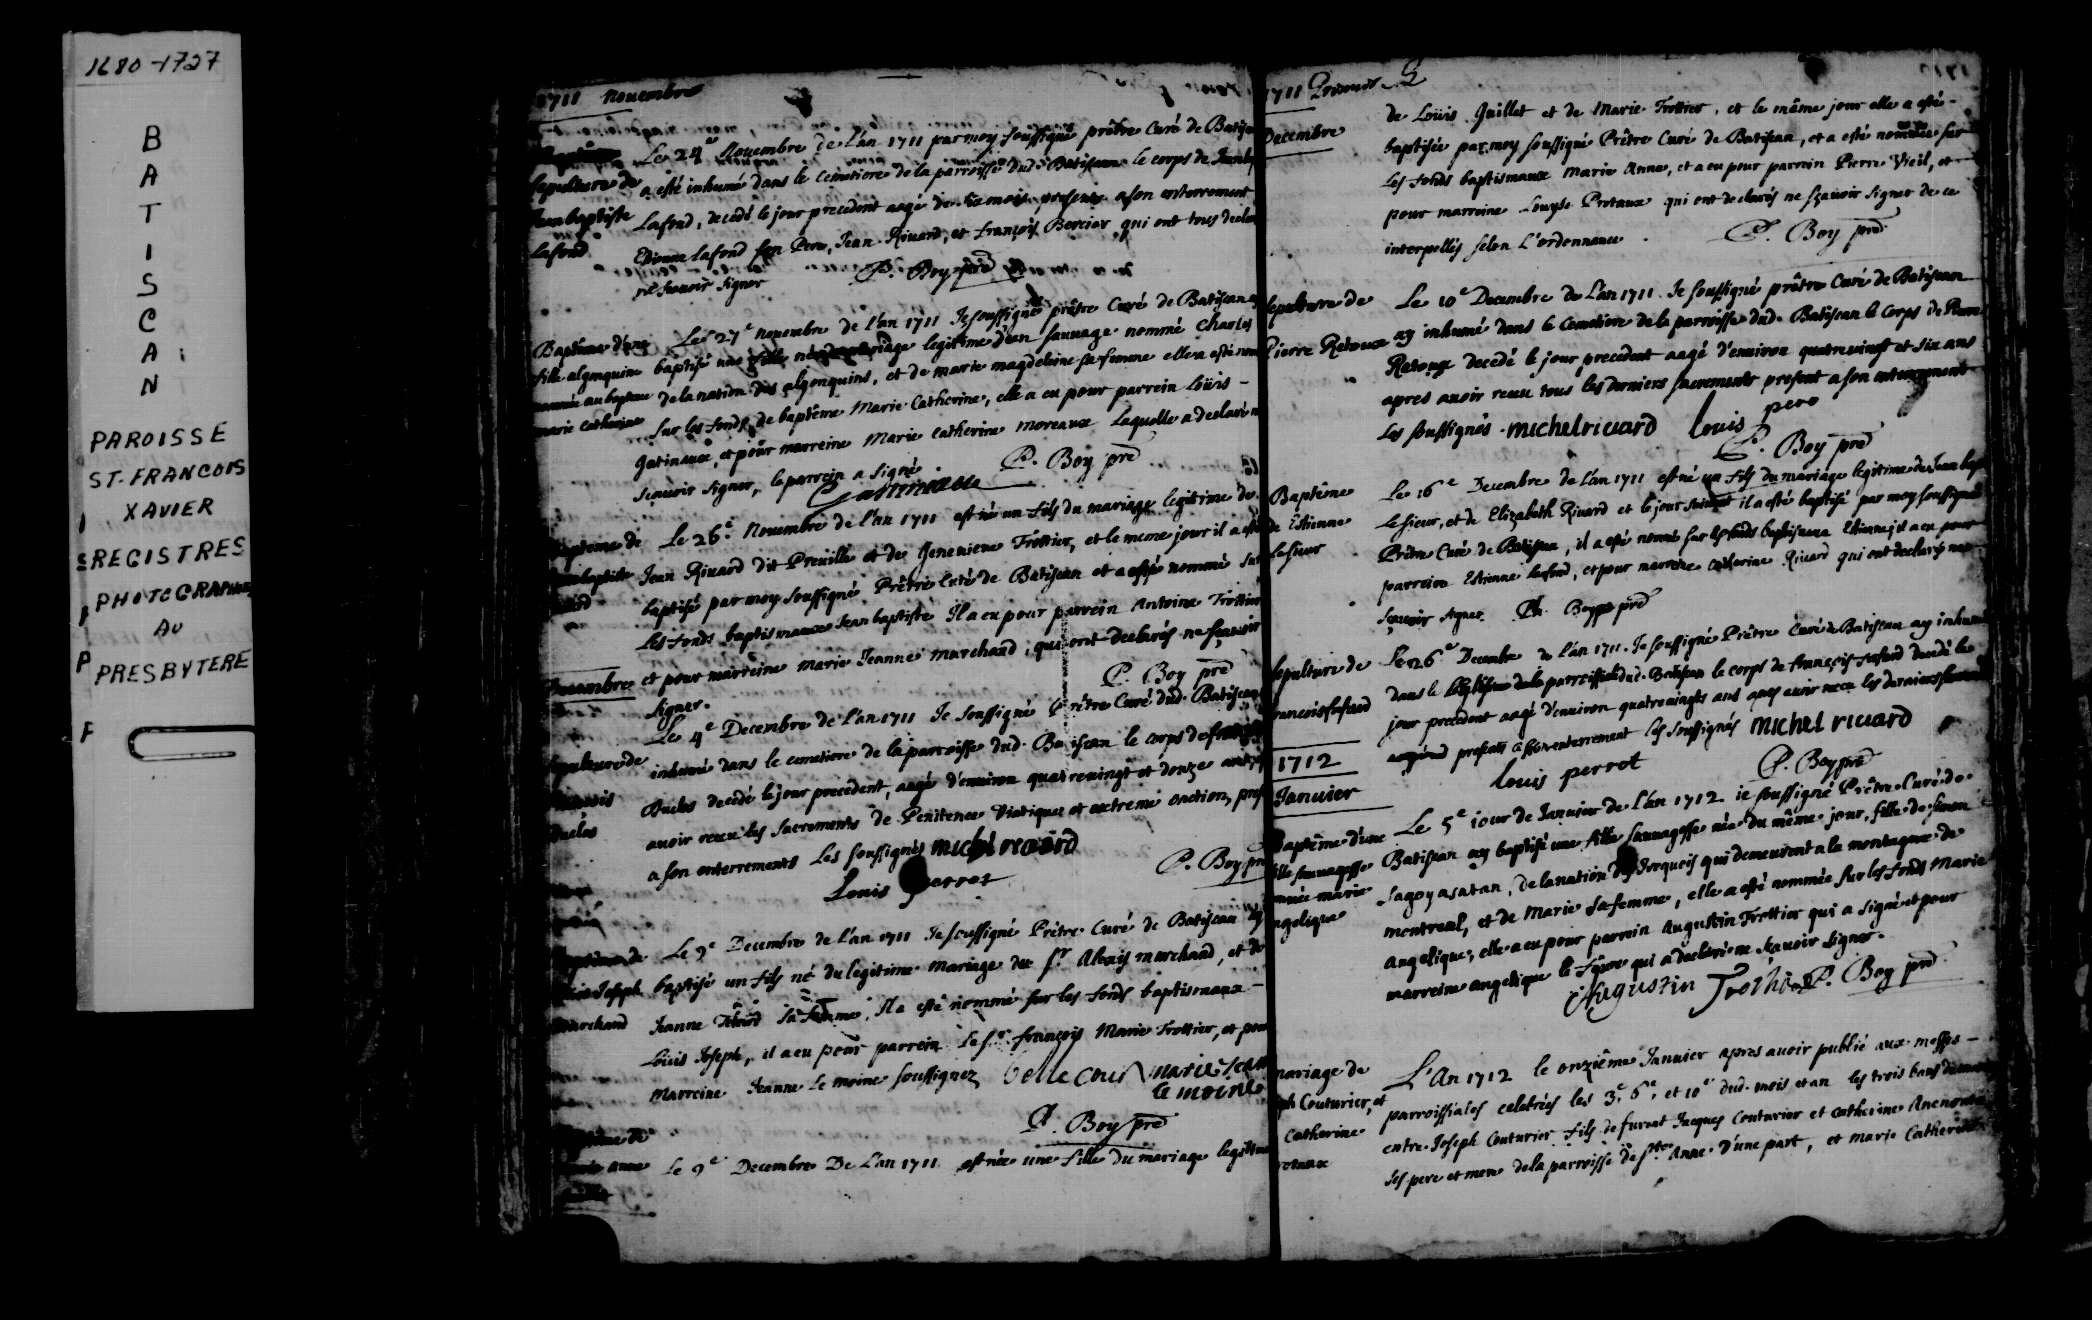 1680-1727
B
A
T
I
S
C
A
N
PAROISSE
ST. FRANCOIS
XAVIER
REGISTRES
PHOTOGRAPHIES
AU
PRESBYTERE
1711 Nouembre
Le 24e Nouembre de L'an 1711 par moy soussigné prêtre Curé de
sepulture de
a esté inhumé dans le Cemetiere de la parroisse dud. Batiscan le corps de
Jean baptiste
Lafond, decedé le jour precedent aagé de six mois, presents a son enterrement
Lafond
Etienne Lafond son Pere, Jean Riuard, et françois Bercier qui ont tous
ne sçauoir signer
P. Boy pre
Baptême d'une
Le 27e nouembre de l'an 1711 Je soussigné prêtre Curé de Batiscan
fille algonquine
baptisé une fille née du mariage legitime d'un sauuage nommé Charles
nommée au bapteme
de la nation des algonquins, et de marie magdeleine sa femme elle a esté
marie Catherine
sur les fonds de baptême Marie Catherine, elle a eu pour parrein Loüis -
Gatineaux, et pour marreine Marie Catherine moreaux Laquelle a declaré
sçauoir signer, le parrein a signé
P. Boy pre
Gatineau
Le 26e Nouembre de l'an 1711 est né un fils du mariage legitime de
Jean Riuard dit Preuille et de Geneuieue Trottier, et le meme jour il a esté
baptisé par moy soussigné Prêtre Curé de Batiscan et a esté nommé sur
Les fonds baptismaux Jean baptiste Il a eu pour parrein Antoine Trottier
et pour marreine marie Jeanne marchand, qui ont declarés ne sçauoir
signer.
P. Boy pre
Le 4e Decembre de l'an 1711 Je soussigné Prêtre Curé dud. Batiscan
inhumé dans le cemetiere de la parroisse dud. Batiscan le corps de
Duclos decedé le jour precedent, aagé d'enuiron quatreuingt et douze ans
Duclos
auoir receu les Sacrements de Penitence Viatique et extreme onction,
a son enterrements Les soussignés michel rivard
Louis perrot
P. Boy pre
Le 9e Decembre de l'an 1711 Je soussigné Prêtre Curé de Batiscan ay
Joseph
baptisé un fils né du legitime mariage du sr Alexis marchand, et de
marchand
Jeanne sa femme, Il a esté nommé sur les fonds baptismaux -
Loüis Joseph, il a eu pour parrein Le sr françois Marie Trottier, et pour
Marreine Jeanne Le moine soussignez bellecour marie Jean
le moine
P. Boy pre
anne
Le 9e Decembre De L'an 1711 est née une fille du mariage legitime
1711
Decembre
de Loüis Guillet et de Marie Trottier, et le même jour elle a esté -
baptisée par moy soussigné Prêtre Curé de Batiscan, et a esté nommée sur
Les fonds baptismaux Marie Anne, et a eu pour parrein Pierre Vieil, et
pour marreine Louyse Protaux qui ont declarés ne sçauoir signer de ce
interpellés selon L'ordonnance.
P. Boy pre
Sepulture de
Le 10e Decembre de L'an 1711 Je soussigné prêtre Curé de Batiscan
Pierre Retoux
ay inhumé dans le Cemetiere de la parroisse dud. Batiscan le Corps de Pierre
Retoux decedé le jour precedent aagé d'enuiron quatreuingt et six ans
apres auoir receu tous les derniers sacrements present a son enterrement
Les soussignés. michel rivard Louis pero
P. Boy pre
Baptême
Le 16e Decembre de l'an 1711 est né un fils du mariage legitime de Jean
de Etienne
Lesieur, et de Elizabeth Riuard et le jour suiuant il a esté baptisé par moy soussigné
Lesieur
Prêtre Curé de Batiscan, il a esté nommé sur les fonds baptismaux Etienne, il a eu pour
parrein Etienne lafond, et pour marreine Catherine Riuard qui ont declarés ne
sçauoir signer. P. Boy pre
Sepulture de
Le 26e Decembre de l'an 1711. Je soussigné Prêtre Curé de Batiscan ay inhumé
dans le parroisse dud. Batiscan le corps de françois decedé le
jour precedent aagé d'enuiron quatreuingts ans apres auoir receu les derniers
presents a son enterrement les soussignés michel rivard
louis perrot
P. Boy pre
1712
Januier
Baptême d'une
Le 5e iour de Januier de L'an 1712 ie soussigné Prêtre Curé de
fille sauuagesse
Batiscan ay baptisé une fille Sauuagesse née du même jour, fille de simon
nommée marie
sagoyasatan, de la nation des Iroqueis qui demeurent a la montagne de
angelique
montreal, et de Marie sa femme, elle a esté nommée sur les fonds Marie
Angelique, elle a eu pour parrein Augustin Trottier qui a signé et pour
marreine angelique qui a declaré ne sçauoir signer.
Augustin Trothier P. Boy pre
mariage de
L'An 1712 le onziéme Januier apres auoir publié aux messes -
Joseph Couturier, et
parroissiales celebrées les 3e, 6e, et 10e dud. mois et an les trois bans
Catherine
entre Joseph Couturier fils de furent Jacques Couturier et catherine
Protaux
ses pere et mere de la parroisse de Ste Anne d'une part, et marie Catherine